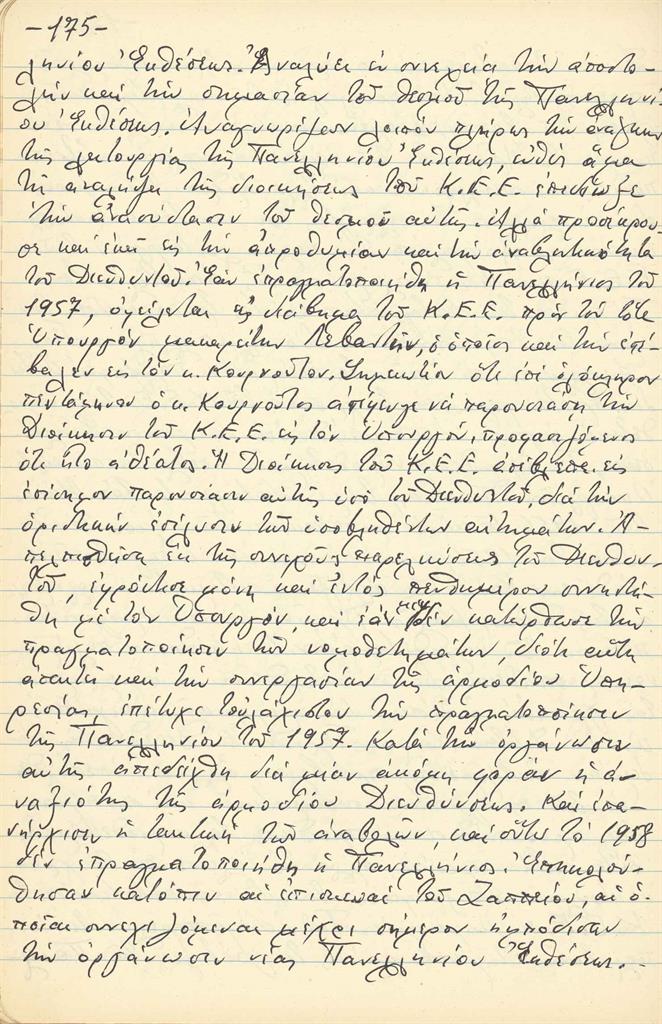 -175-
ληνίου Ἐκθέσεως. Ἀναλύει ἐν συνεχείᾳ τὴν ἀποστο-
λὴν καὶ τὴν σημασίαν τοῦ θεσμοῦ τῆς Πανελληνί-
ου Ἐκθέσεως. Ἀναγνωρίζεον λοιπὸν πλήρως τὴν ἀνάγκην
τῆς λειτουργίας τῆς Πανελληνίου Ἐκθέσεως, εὐθὺς ἅμα
τῇ ἀναλήψει τῆς διοικήσεως τοῦ Κ.Ε.Ε. ἐπεδίωξε
τὴν ἀνασύστασιν τοῦ θεσμοῦ αὐτῆς. Ἀλλὰ προσέκρου-
σε καὶ ἐκεῖ εἰς τὴν ἀπροθυμίαν καὶ τὴν ἀναβλητικότητα
τοῦ Διευθυντοῦ. Ἐὰν ἐπραγματοποιήθη ἡ Πανελλήνιος τοῦ
1957, ὀφείλεται εἰς διάβημα τοῦ Κ.Ε.Ε. πρὸς τὸν τότε
Ὑπουργὸν μακαρίτην Λεβαντῆν, ὁ ὁποῖος καὶ τὴν ἐπέ-
βαλεν εἰς τὸν κ. Κουρνοῦτον. Σημειωτέον ὅτι ἐπὶ ὁλόκληρον
πεντάμηνον ὁ κ. Κουρνοῦτος ἀπέφευγε νὰ παρουσιάσῃ τὴν
Διοίκησιν τοῦ Κ.Ε.Ε. εἰς τὸν Ὑπουργόν, προφασιζόμενος
ὅτι ἦτο ἀθέατος. Ἡ Διοίκησις τοῦ Κ.Ε.Ε. ἀπέβλεπε εἰς
ἐπίσημον παρουσίασιν αὐτῆς ὑπὸ τοῦ Διευθυντοῦ, διὰ τὴν
ὁριστικὴν ἐπίλυσιν τῶν ὑποβληθέντων αἰτημάτων. Ἀ-
πελπισθεῖσα ἐκ τῆς συνεχοῦς παρελκύσεως τοῦ Διευθυν-
τοῦ, ἐφρόντισε μόνη καὶ ἐντὸς πενθημέρου συνητή-
θη μὲ τὸν Ὑπουργόν, καὶ ἐὰν μὲν δὲν κατώρθωσε τὴν
πραγματοποίησιν τῶν νομοθετημάτων, διότι αὕτη
ἀπαιτεῖ καὶ τὴν συνεργασίαν τῆς ἁρμοδίου Ὑπη-
ρεσίας, ἐπέτυχε τοὐλάχιστον τὴν πραγματοποίησιν
τῆς Πανελληνίου τοῦ 1957. Κατὰ τὴν ὀργάνωσιν
αὐτῆς ἀπεδείχθη διὰ μίαν ἀκόμη φορὰν ἡ ἀ-
ναξιότης τῆς ἁρμοδίου Διευθύνσεως. Καὶ ἐπα-
νήρχισεν ἡ τακτικὴ τῶν ἀναβολῶν, καὶ οὕτω τὸ 1958
δὲν ἐπραγματοποιήθη ἡ Πανελλήνιος. Ἐπηκολού-
θησαν κατόπιν αἱ ἐπισκευαὶ τοῦ Ζαππείου, αἱ ὁ-
ποῖαι συνεχιζόμεναι μέχρι σήμερον ἠμπόδισαν
τὴν ὀργάνωσιν νέας Πανελληνίου Ἐκθέσεως.-